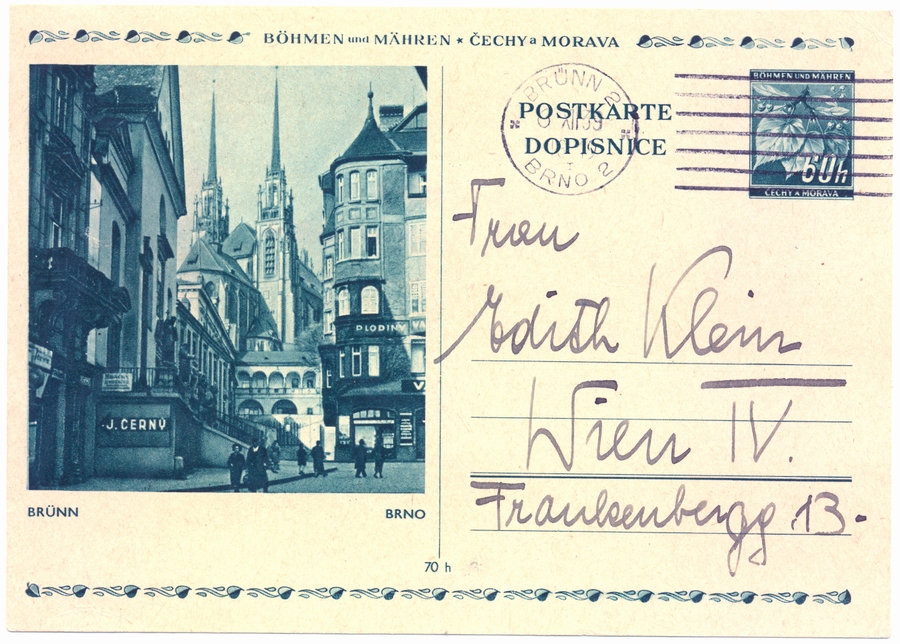 BÖHMEN und MÄHREN ★ ČECHY a MORAVA
PLODINY
J. ČERNÝ
BRÜNN
BRNO
BRÜNN 2
XII 39
BRNO 2
POSTKARTE
DOPISNICE
BÖHMEN UND MÄHREN
60h
ČECHY A MORAVA
Frau
Edith Klein
Wien IV.
Frankenbergg 13.
70 h